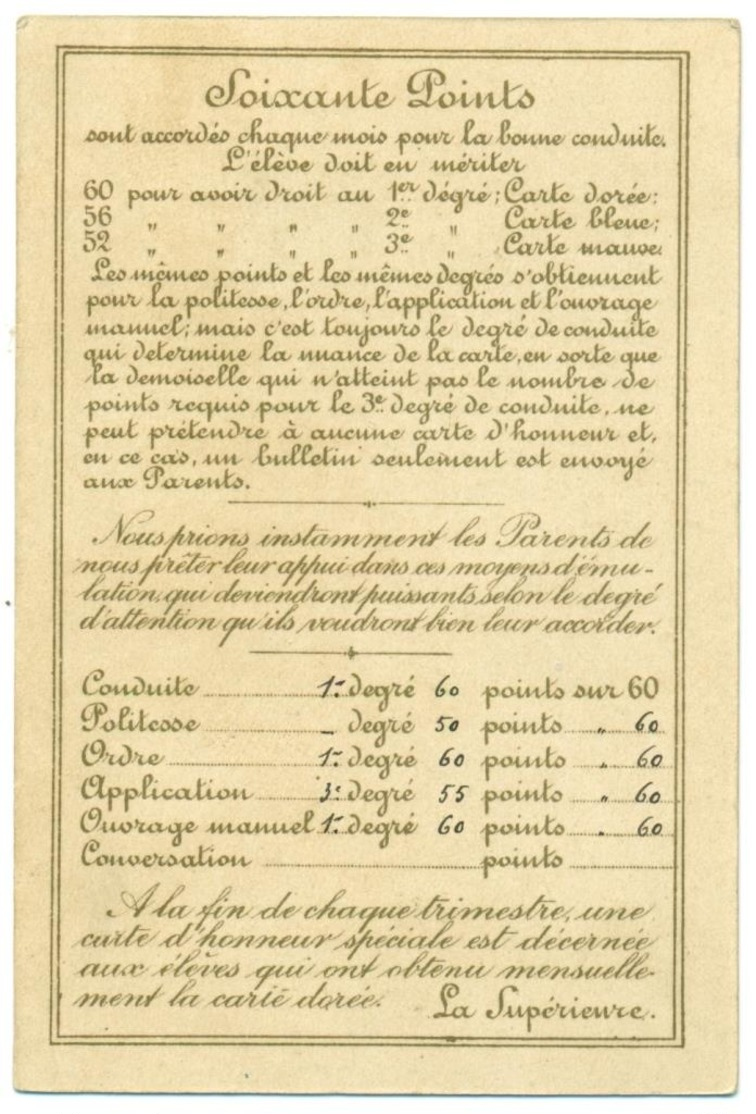 Soixante Points
sont accordés chaque mois pour la bonne conduite.
L'élève doit en mériter
60 pour avoir droit au 1er dégré; Carte dorée:
56 „ „ „ „ 2e „ Carte bleue;
52 „ „ „ „ 3e „ Carte mauve.
Les mêmes points et les mêmes degrés s'obtiennent
pour la politesse, l'ordre, l'application et l'ouvrage
manuel; mais c'est toujours le degré de conduite
qui determine la nuance de la carte, en sorte que
la demoiselle qui n'atteint pas le nombre de
points requis pour le 3e degré de conduite, ne
peut prétendre à aucune carte d'honneur et,
en ce cas, un bulletin seulement est envoyé
aux Parents.
Nous prions instamment les Parents de
nous prêter leur appui dans ces moyens d'ému-
lation, qui deviendront puissants, selon le degré
d'attention qu'ils voudront bien leur accorder.
Conduite 1r degré 60 points sur 60
Politesse _ degré 50 points „ 60
Ordre 1r degré 60 points „ 60
Application 3e degré 55 points „ 60
Ouvrage manuel 1r degré 60 points „ 60
Conversation points
A la fin de chaque trimestre, une
carte d'honneur spéciale est décernée
aux élèves qui ont obtenu mensuelle-
ment la carte dorée.
La Supérieure.